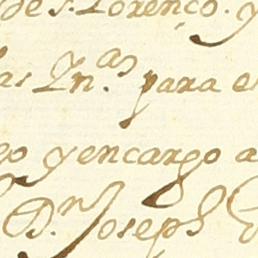 de S. Lorenço. y
las Yn.ᵃˢ para e
go y encargo a
D.ⁿ Joseph